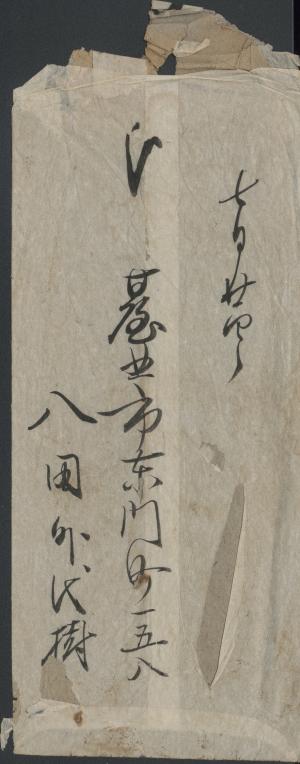 七月廿四日
臺北市東門町一五八
八田外代樹